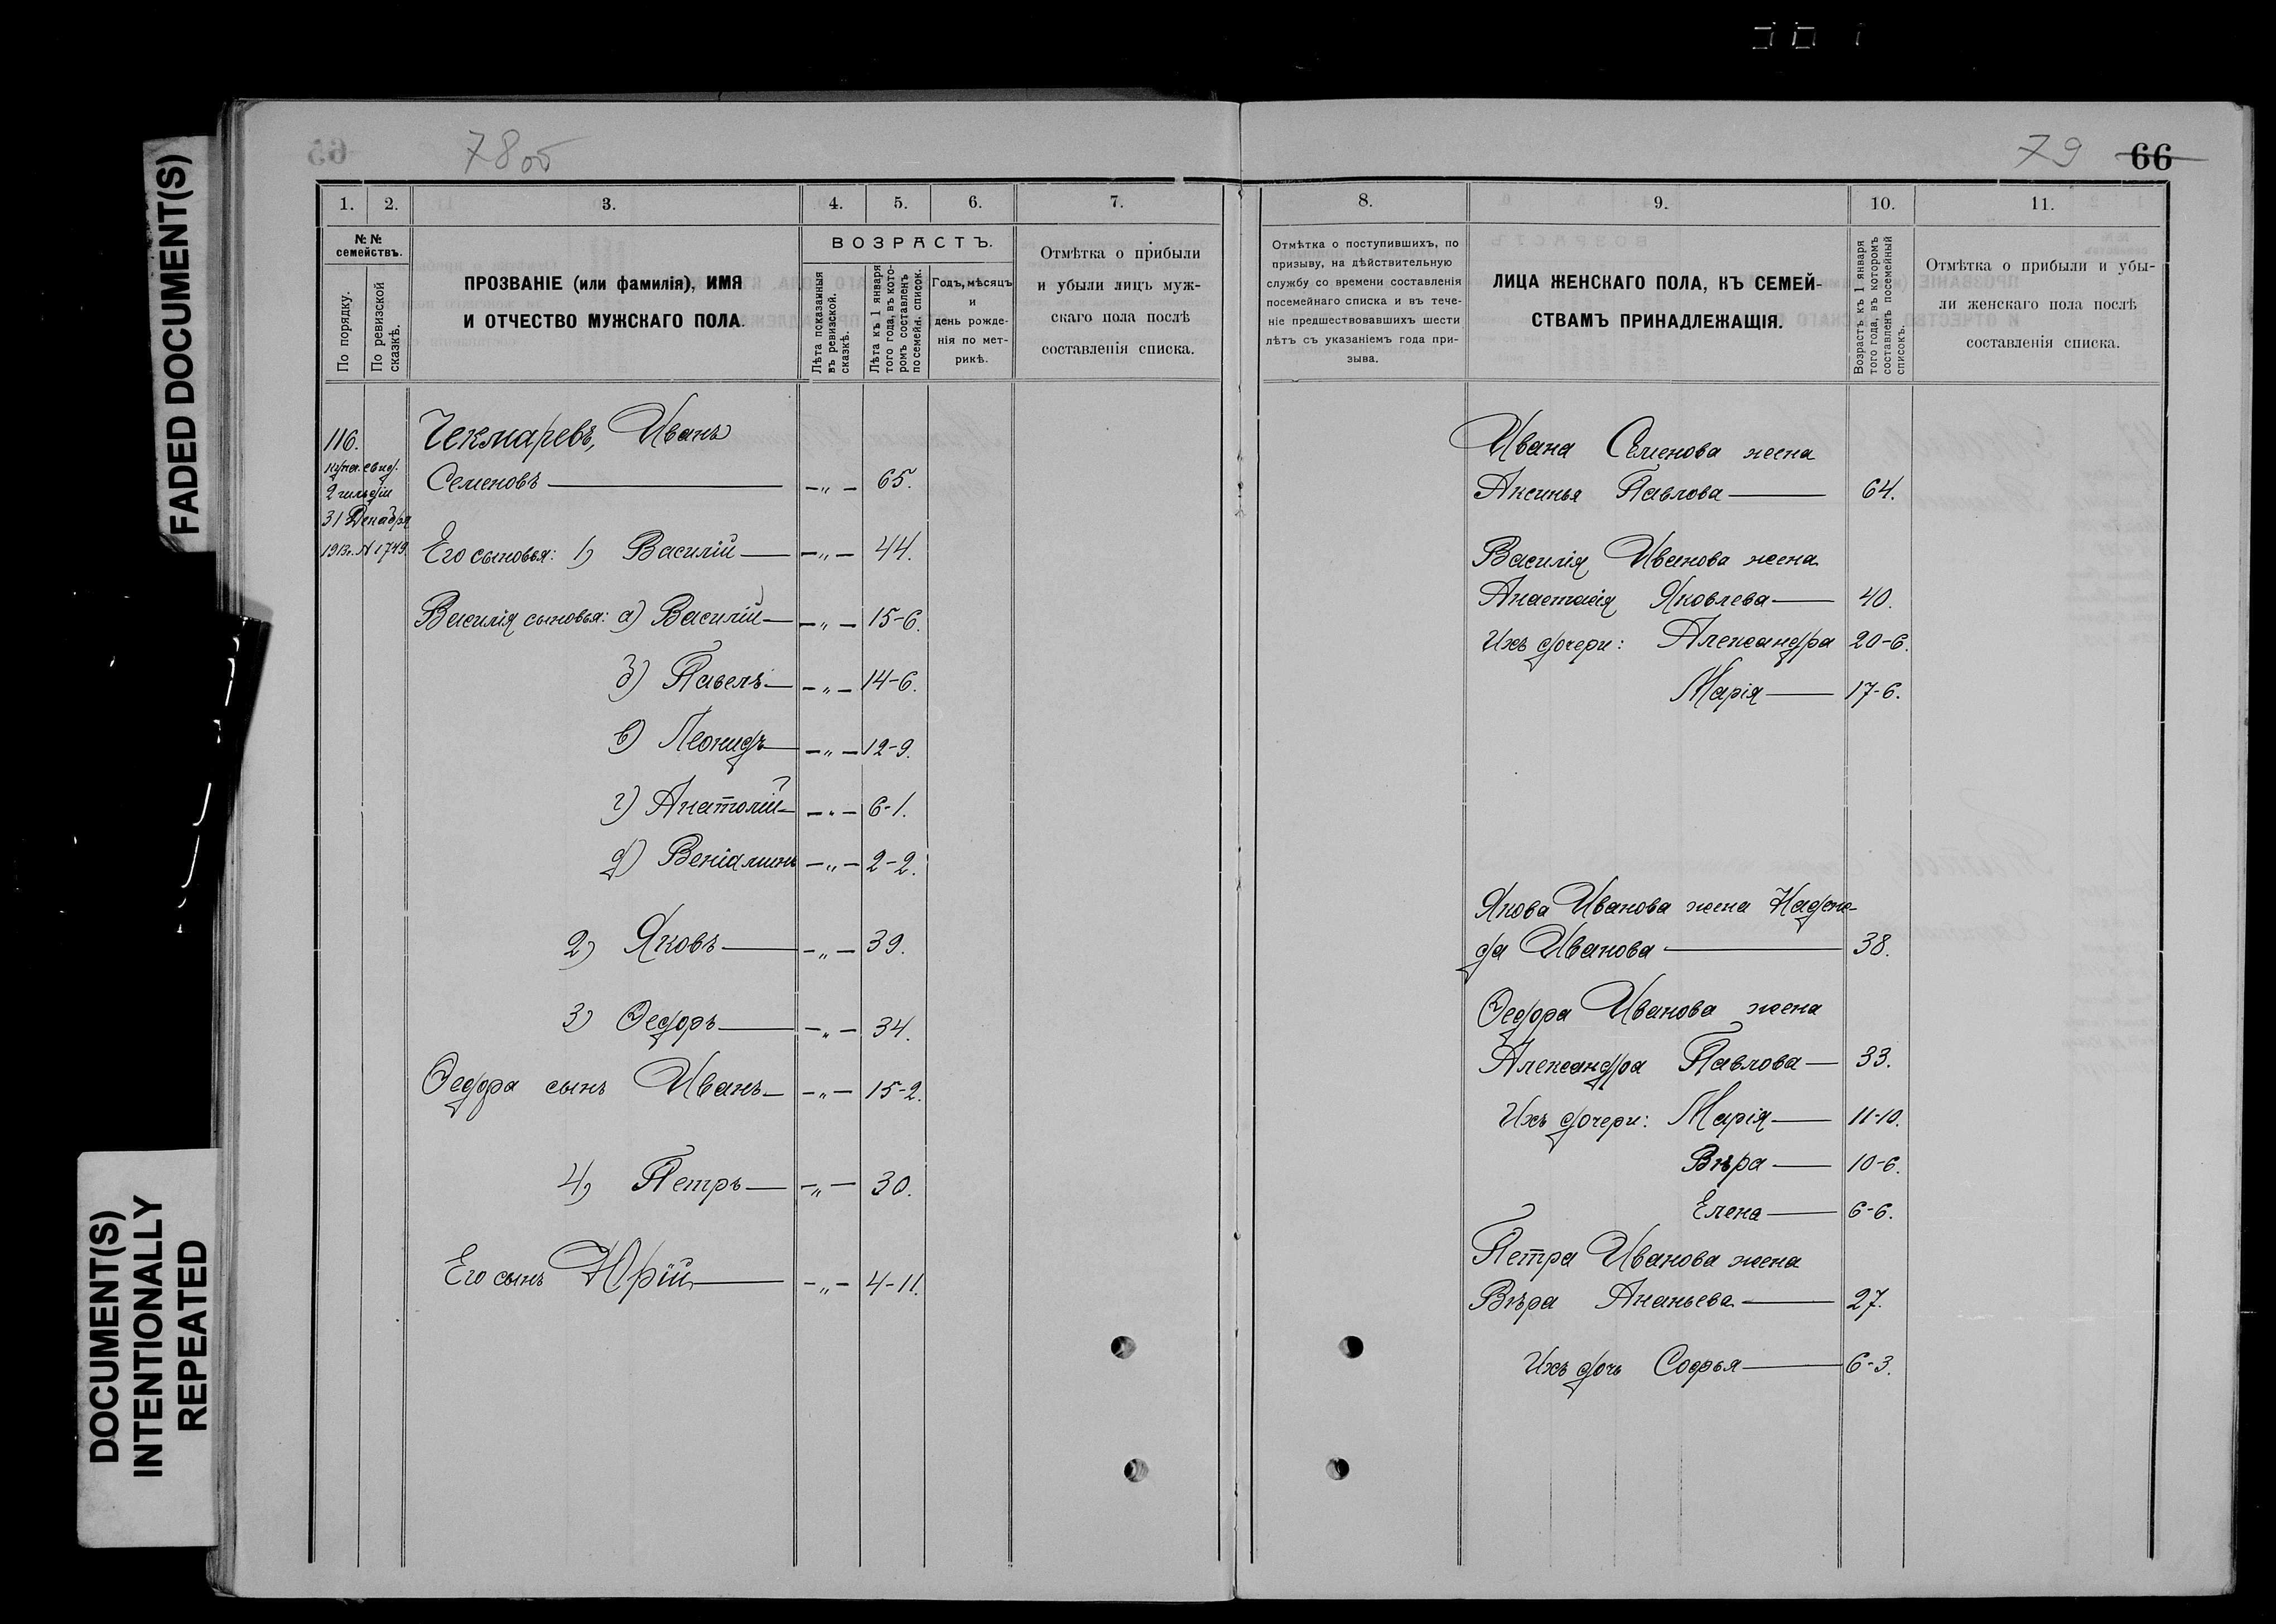 FADED DOCUMENT(S)
DOCUMENT(S)
INTENTIONALLY
REPEATED
65
78об
1. 2. 3. 4. 5. 6. 7.
№ №
семействъ.
По порядку.
По ревизской
сказкѣ.
ПРОЗВАНІЕ (или фамилія), ИМЯ
И ОТЧЕСТВО МУЖСКАГО ПОЛА.
ВОЗРАСТЪ.
Лѣта показанныя
въ ревизской
сказкѣ.
Лѣта къ 1 января
того года, въ кото-
ромъ составленъ
посемейн. список.
Годъ, мѣсяцъ
и
день рожде-
нія по мет-
рикѣ.
Отмѣтка о прибыли
и убыли лицъ муж-
скаго пола послѣ
составленія списка.
116.
Купч. свид.
2 гильдіи
31 Декабря
1913г. № 1749.
Чекмаревъ, Иванъ
Семеновъ — „ — 65.
Его сыновья: 1) Василій — „ — 44.
Василія сыновья: а) Василій — „ — 15-6.
б) Павелъ — „ — 14-6.
в) Леонидъ — „ — 12-9.
г) Анатолій — „ — 6-1.
д) Веніаминъ — „ — 2-2.
2) Яковъ — „ — 39.
3) Ѳедоръ — „ — 34.
Ѳедора сынъ Иванъ — „ — 15-2.
4) Петръ — „ — 30.
Его сынъ Юрій — „ — 4-11.
79 66
8. 9. 10. 11.
Отмѣтка о поступившихъ, по
призыву, на дѣйствительную
службу со времени составленія
посемейнаго списка и въ тече-
ніе предшествовавшихъ шести
лѣтъ съ указаніемъ года при-
зыва.
ЛИЦА ЖЕНСКАГО ПОЛА, КЪ СЕМЕЙ-
СТВАМЪ ПРИНАДЛЕЖАЩІЯ.
Возрастъ къ 1 января
того года, въ которомъ
составленъ посемейный
списокъ.
Отмѣтка о прибыли и убы-
ли женскаго пола послѣ
составленія списка.
Ивана Семенова жена
Аксинья Павлова — 64.
Василія Иванова жена
Анастасія Яковлева — 40.
Ихъ дочери: Александра 20-6.
Марія — 17-6.
Якова Иванова жена Надеж-
да Иванова — 38.
Ѳедора Иванова жена
Александра Павлова — 33.
Ихъ дочери: Марія — 11-10.
Вѣра — 10-6.
Елена — 6-6.
Петра Иванова жена
Вѣра Ананьева — 27.
Ихъ дочь Софья — 6-3.